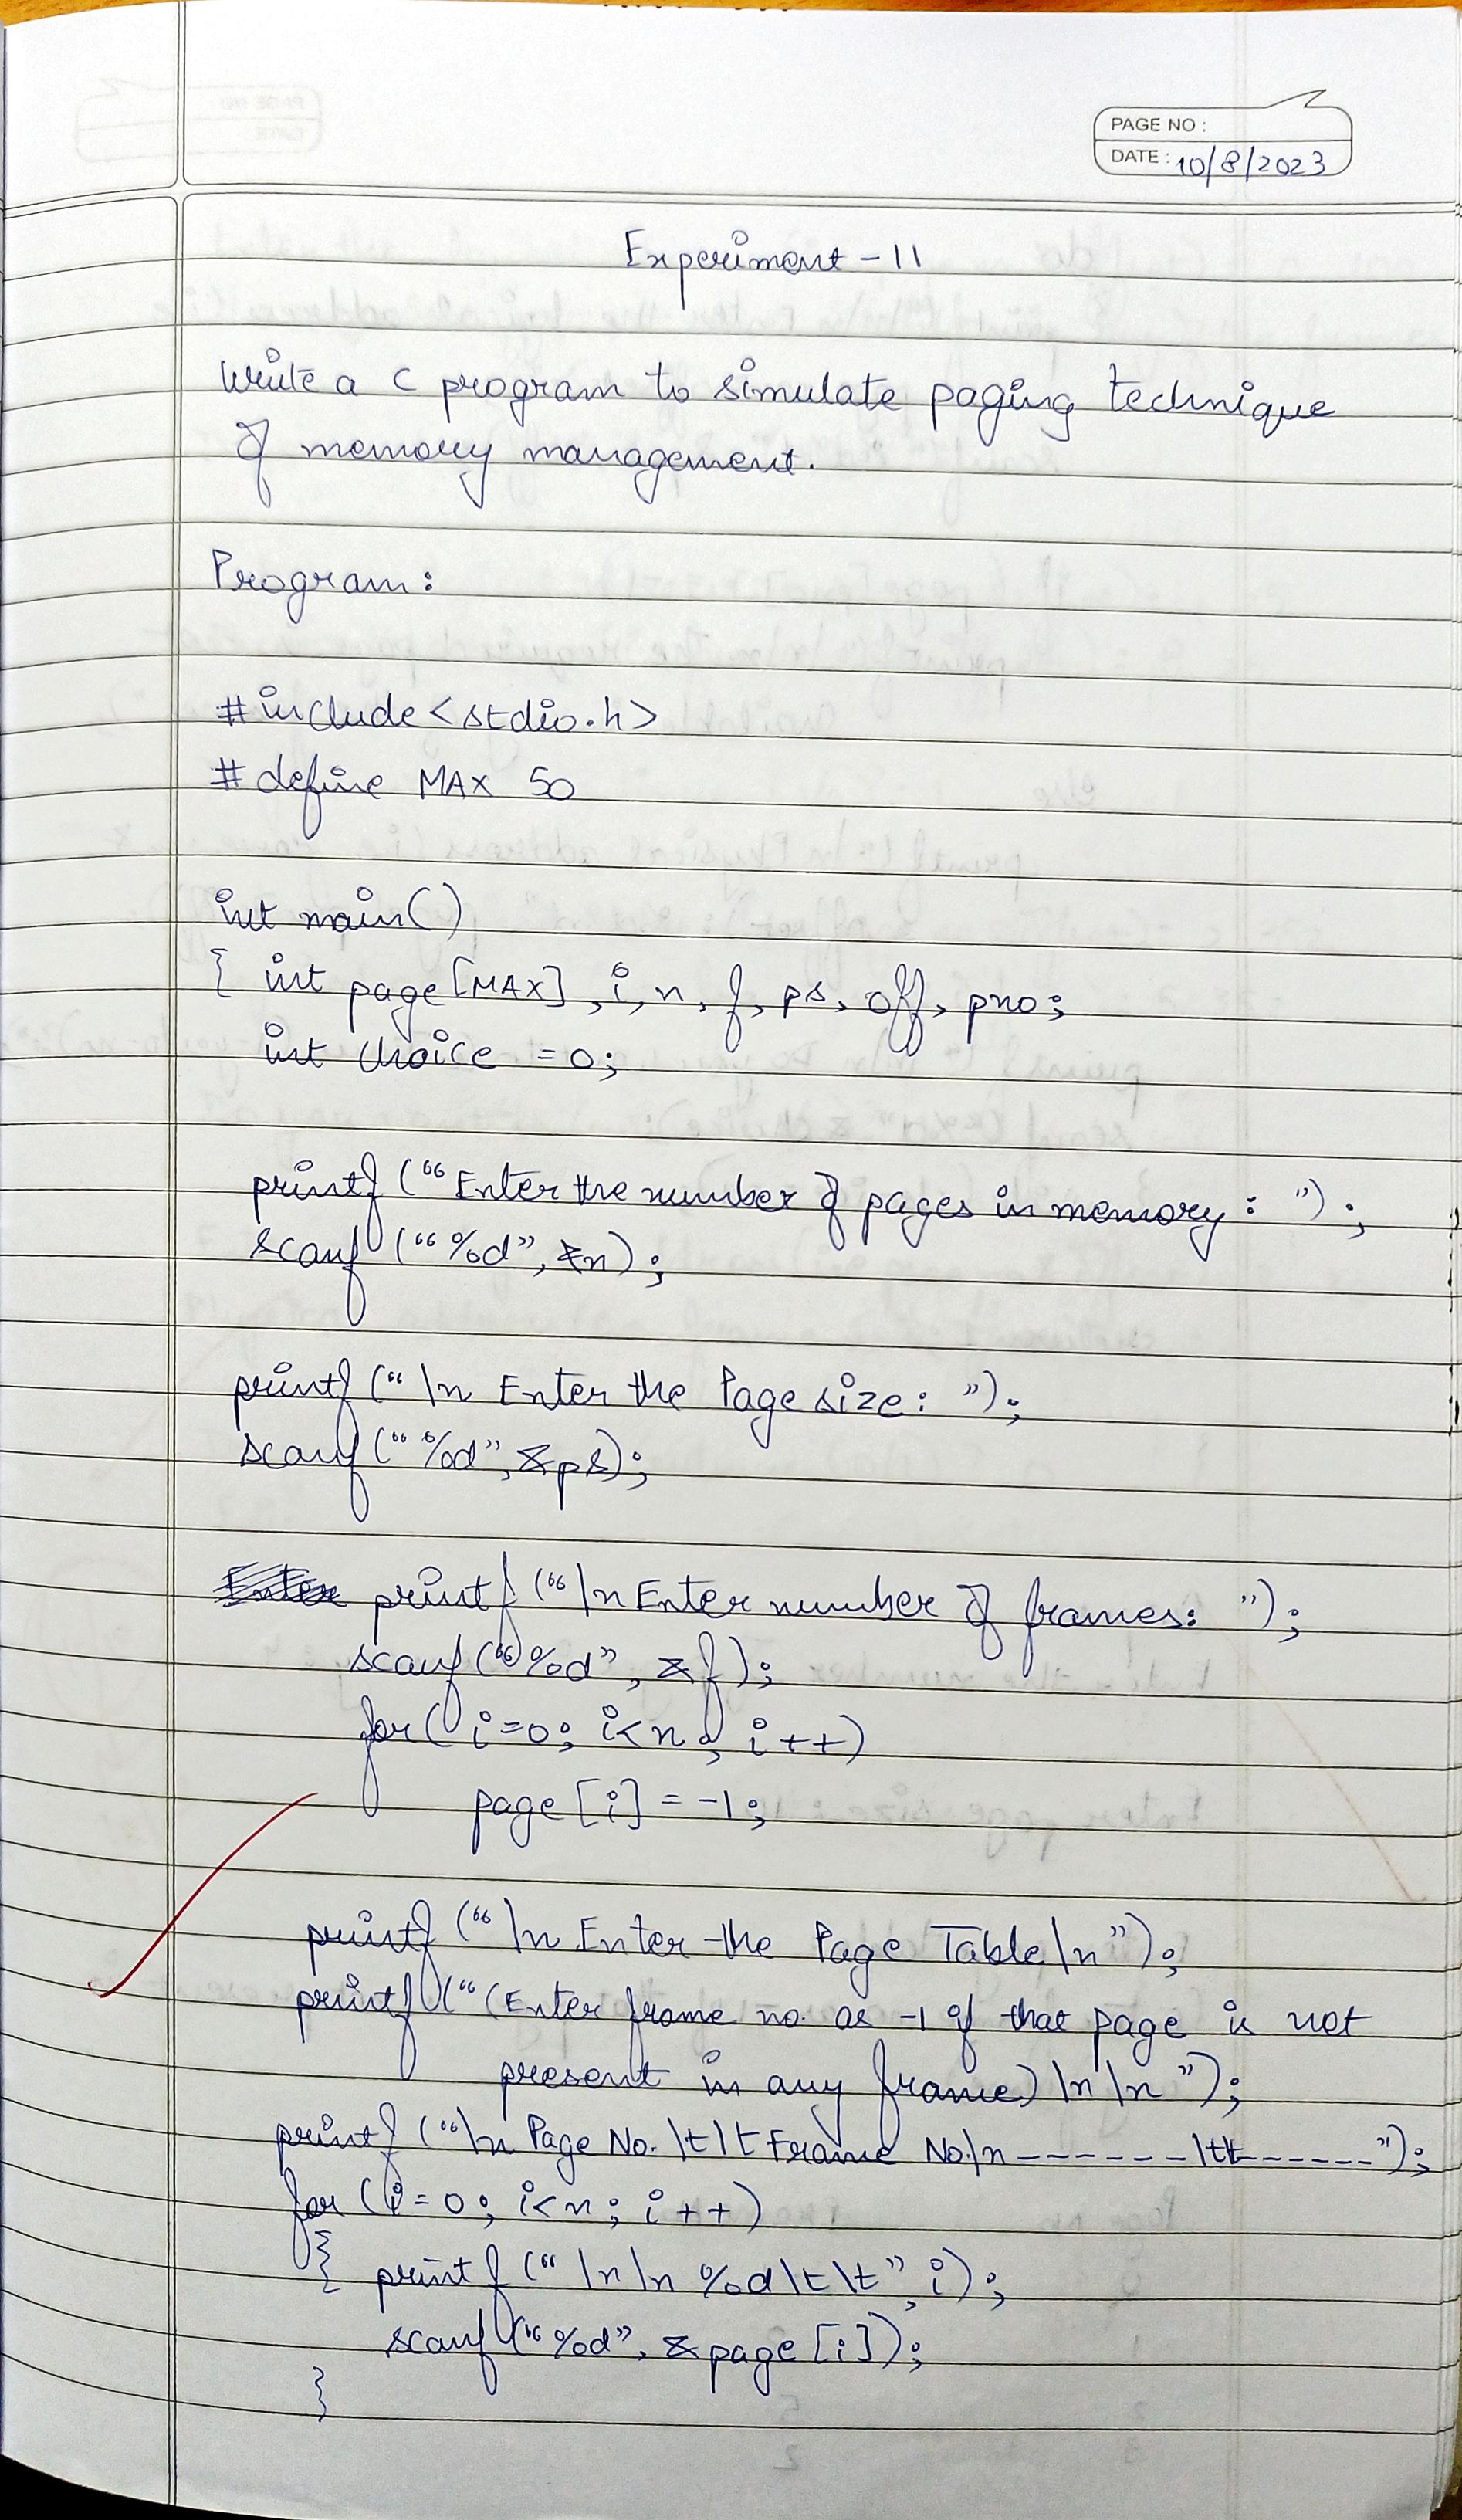 PAGE NO :
DATE : 10/8/2023
Experiment - 11
Write a C program to simulate paging technique
of memory management.
Program:
#include <stdio.h>
#define MAX 50
int main()
{ int page [MAX], i, n, f, ps, off, pno;
int choice = 0;
printf ("Enter the number of pages in memory: ");
scanf ("%d", &n);
printf ("\n Enter the Page size: ");
scanf ("%d", &ps);
printf ("\n Enter number of frames: ");
scanf ("%d", &f);
for( i=0; i<n; i++)
page [i] = -1;
printf ("\n Enter the Page Table \n");
printf ("(Enter frame no. as -1 if that page is not
present in any frame) \n \n ");
printf ("\n Page No. \t \t Frame No.\n ------- \t\t------");
for (i=0; i<n; i++)
{ printf (" \n \n %d \t \t", i);
scanf ("%d", &page [i]);
}